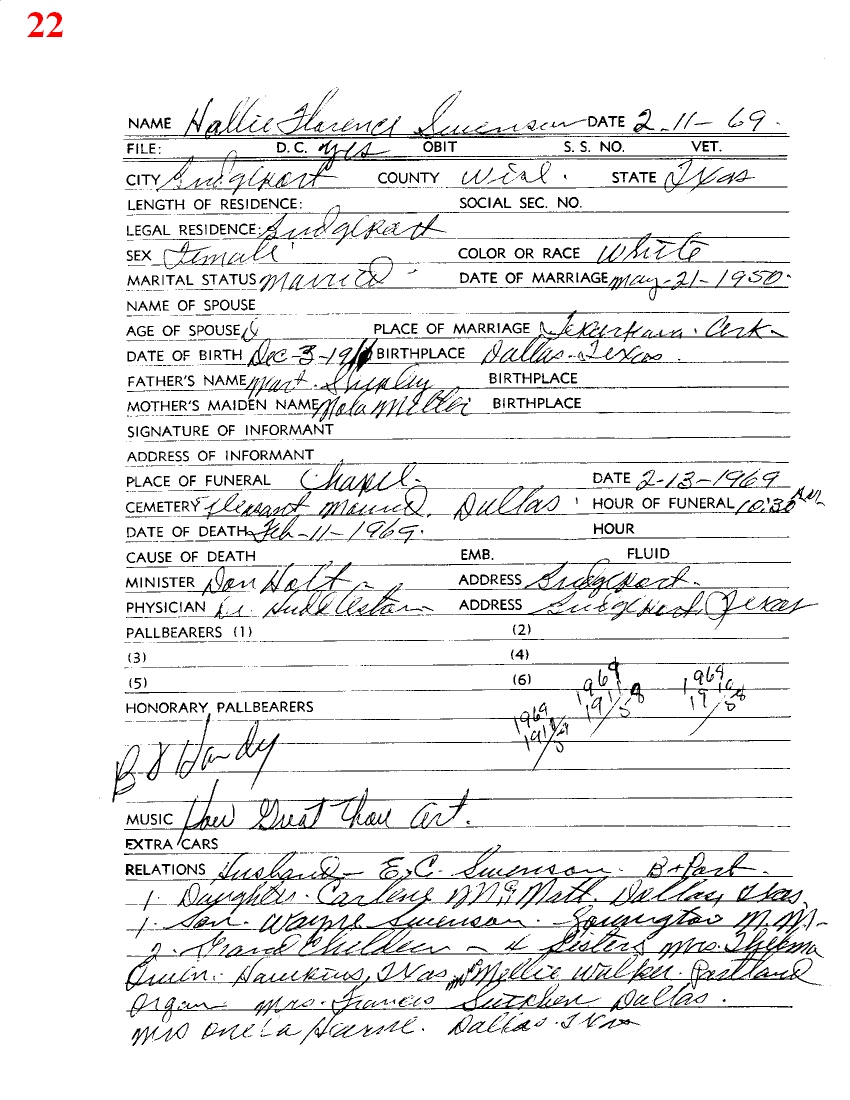 22
NAME Hallie Florence Swenson DATE 2-11-69.
FILE: D.C. yes OBIT S. S. NO. VET.
CITY Bridgeport COUNTY Wise. STATE Texas
LENGTH OF RESIDENCE: SOCIAL SEC. NO.
LEGAL RESIDENCE: Bridgeport
SEX Female COLOR OR RACE White
MARITAL STATUS Married DATE OF MARRIAGE may-21-1950.
NAME OF SPOUSE
AGE OF SPOUSE PLACE OF MARRIAGE Texarkana. Ark-
DATE OF BIRTH Dec-3-19 BIRTHPLACE Dallas-Texas.
FATHER'S NAME Mart. Shipley BIRTHPLACE
MOTHER'S MAIDEN NAME Nola Miller BIRTHPLACE
SIGNATURE OF INFORMANT
ADDRESS OF INFORMANT
PLACE OF FUNERAL Chapel. DATE 2-13-1969
CEMETERY Pleasant Mound. Dallas HOUR OF FUNERAL 10:30 AM
DATE OF DEATH Feb-11-1969. HOUR
CAUSE OF DEATH EMB. FLUID
MINISTER Don Holt- ADDRESS Bridgeport-
PHYSICIAN Dr Huddleston ADDRESS Bridgeport, Texas
PALLBEARERS (1) (2)
(3) (4)
(5) (6)
1969 1969 1969
HONORARY PALLBEARERS
B J Handy
MUSIC How Great Thou Art.
EXTRA CARS
RELATIONS Husband- E.C. Swenson. B-Port.
1. Daughter. Carlene Dallas, Texas,
1. Son. Wayne Swenson. N.M-
2. Grand Children - 4 Sisters Mrs. Thelma
Owen. Hawkins, Texas, Mrs Mellie Walker. Portland
Organ Mrs. Francis Dallas.
Mrs Dallas. Texas